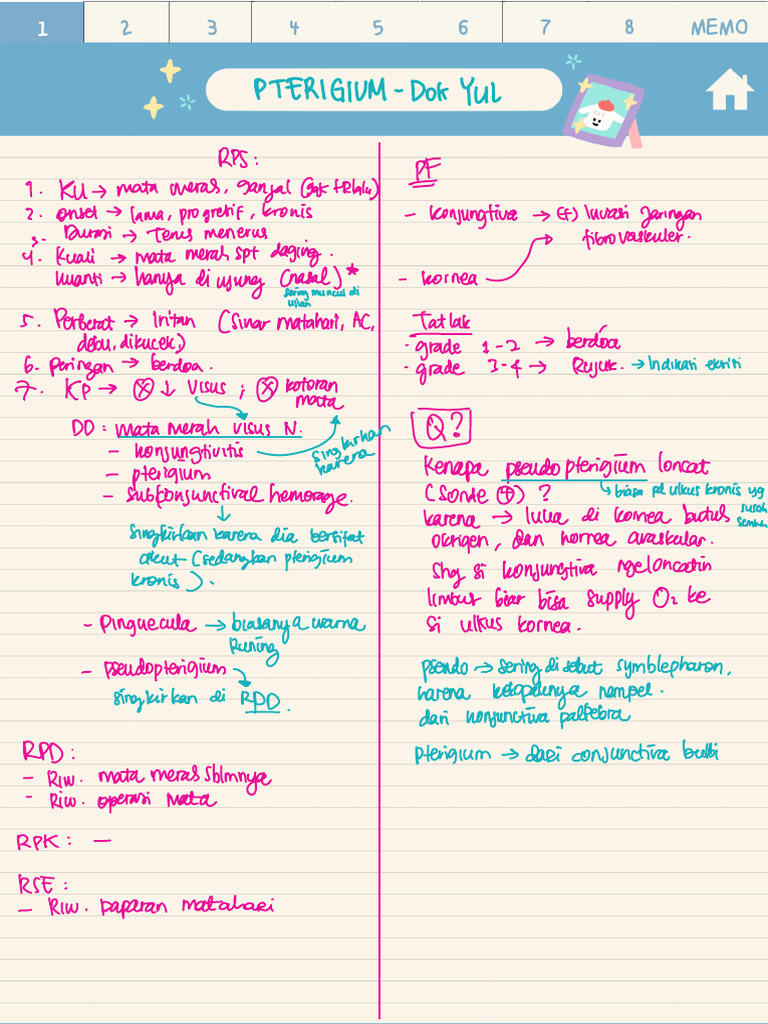 1 2 3 4 5 6 7 8 MEMO
PTERIGIUM - Dok YUL
RPS :
1. KU → mata merah, ganjal (gak trlalu)
2. onset → lama, progresif, kronis
3. Durasi → Terus menerus
4. Kuali → mata merah spt daging.
kuanti → hanya di ujung (nasal) *
sering muncul di
ujian
5. Perberat → Iritan (sinar matahari, AC,
debu, dikucek)
6. Peringan → berdoa.
7. KP → ⊗ ↓ visus ; ⊗ kotoran
mata
DD : mata merah visus N.
- konjungtivitis
singkirkan
karena
- pterigium
- subkonjunctival hemorage.
↓
singkirkan karena dia bersifat
akut (sedangkan pterigium
kronis).
- Pinguecula → biasanya warna
kuning
- pseudopterigium
singkirkan di RPD.
RPD :
- Riw. mata merah sblmnya
- Riw. operasi mata
RPK : —
RSE :
- Riw. paparan matahari
PF
- konjungtiva → (+) Invasi jaringan
fibrovaskuler.
- kornea
Tatlak
- grade 1-2 → berdoa
- grade 3-4 → Rujuk. → Indikasi eksisi
Q?
Kenapa pseudopterigium loncat
(sonde (+)) ?
↳ biasa pd ulkus kronis yg
susah
sembuh
karena → luka di kornea butuh
oksigen, dan kornea avaskular.
Shg si konjungtiva ngeloncatin
limbus biar bisa supply O2 ke
si ulkus kornea.
pseudo → sering disebut symblepharon,
karena kelopaknya nempel.
dari konjunctiva palpebra
pterigium → dari conjunctiva bulbi